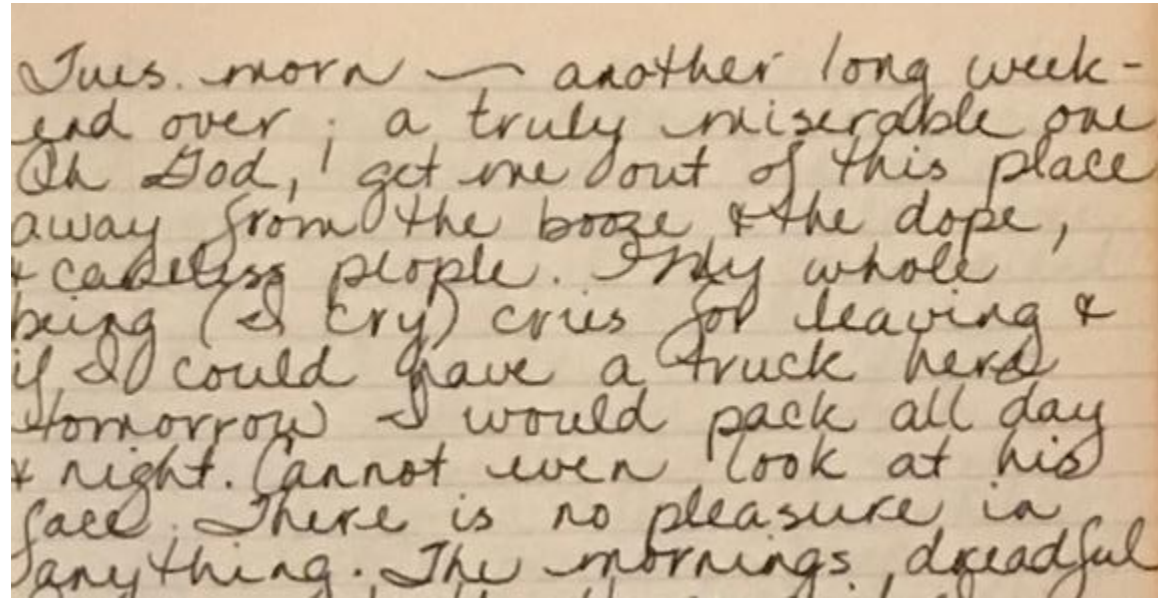 Tues. morn — another long week-
end over; a truly miserable one
Oh God, get me out of this place
away from the booze & the dope,
& careless people. My whole
being (I cry) cries for leaving &
if I could have a truck here
tomorrow I would pack all day
& night. Cannot even look at his
face. There is no pleasure in
anything. The mornings, dreadful